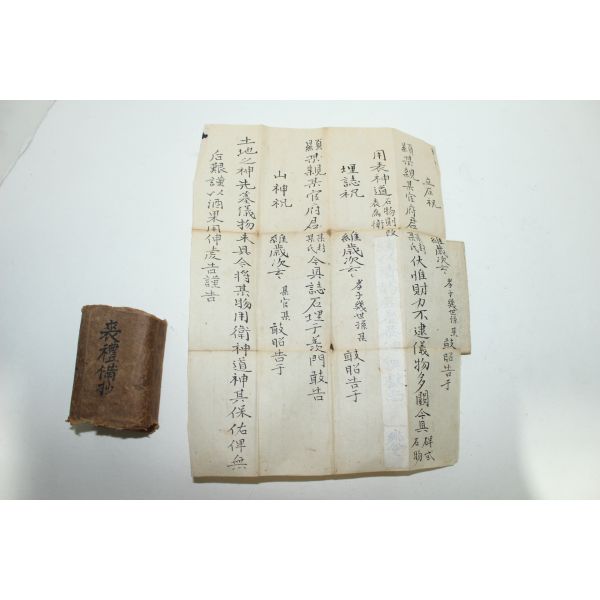 立石祝
維歲次云云 孝子幾世孫某 敢昭告于
顯某親某官府君某封某氏 伏惟財力不逮儀物多闕今具碑或石物
用表神道石物則改表爲衛
埋誌祝
維歲次云云 孝子幾世孫某 敢昭告于
顯某親某官府君某封某氏 今具誌石埋于羨門敢告
山神祝
維歲次云云 某官某 敢昭告于
土地之神先墓儀物未具今將某物用衛神道神其保佑俾無
后艱謹以酒果用伸虔告謹告
喪禮備抄